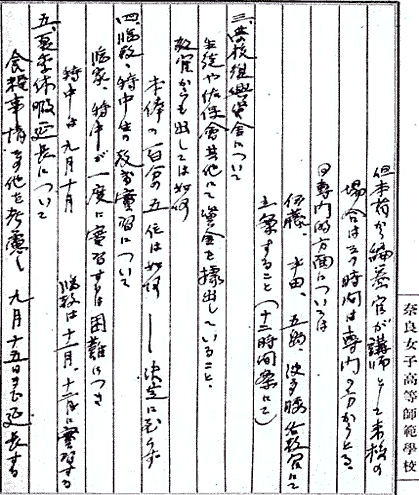 奈良女子高等師範學校
但本省から編纂官が講師として来校の
場合は三時間は専門の方からとる、
日専門的方面については
伊藤、水田、五島、波多腰各教官にて
立案すること(十二時間案にて)
三、学校復興資金について
生徒や佐保會其他にて資金を醵出していること、
教官からも出しては如何
本俸の百分の五位は如何 — 決定に至らず
四、臨教、特中生の教育實習について
臨家、特中が一度に實習するは困難につき
特中は九月十月 臨教は十一月、十二月に實習する
五、夏季休暇延長について
食糧事情その他を考慮し 九月十五日まで延長する